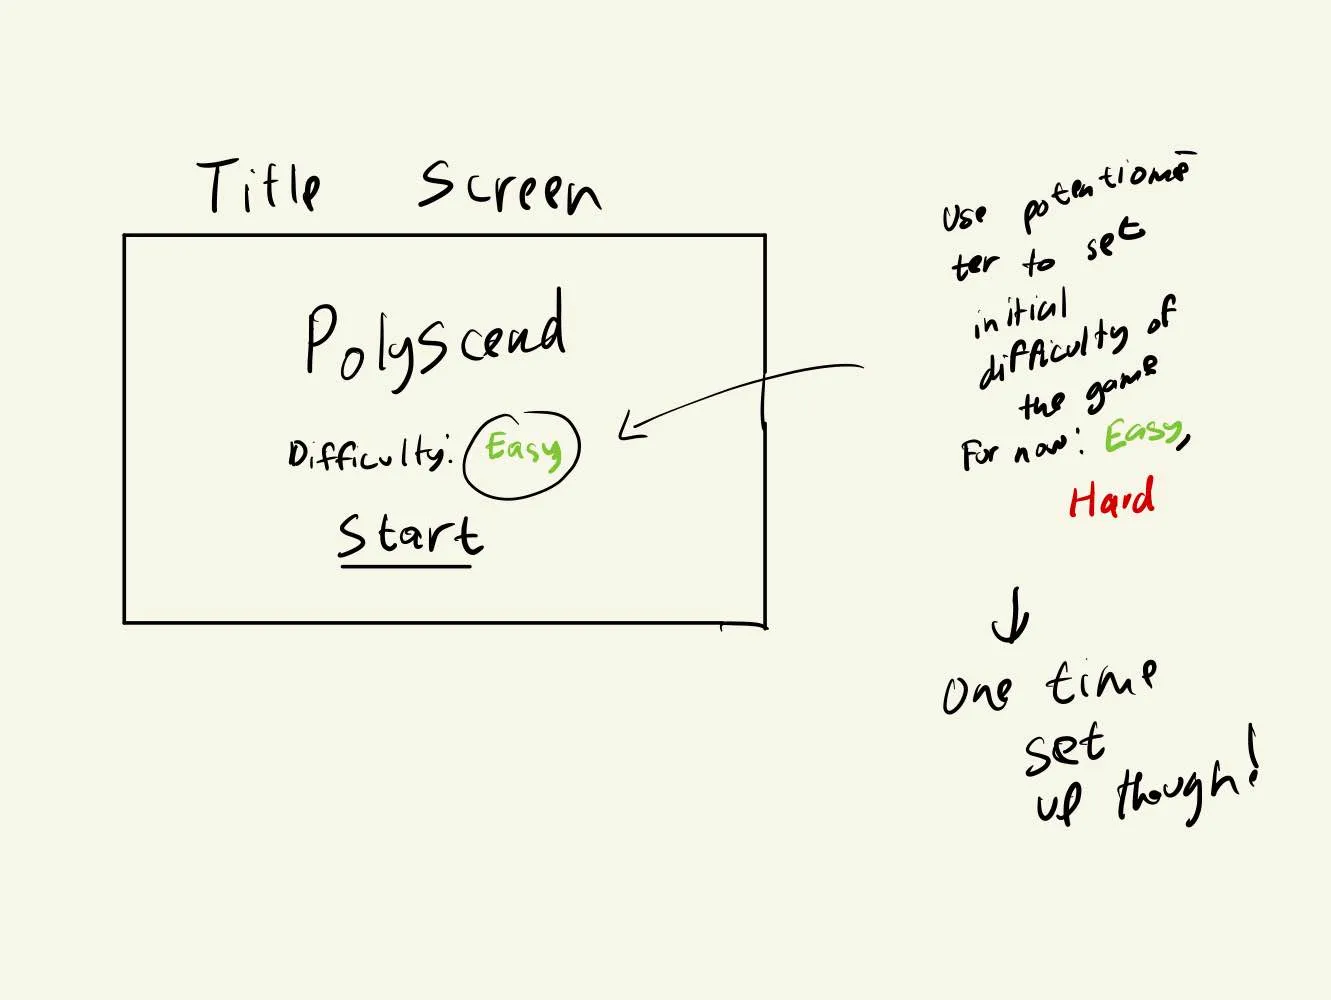 Title Screen
Polyscend
Difficulty: Easy
Start
Use potentiome-
ter to set
initial
difficulty of
the game
For now: Easy,
Hard
One time
set
up though!